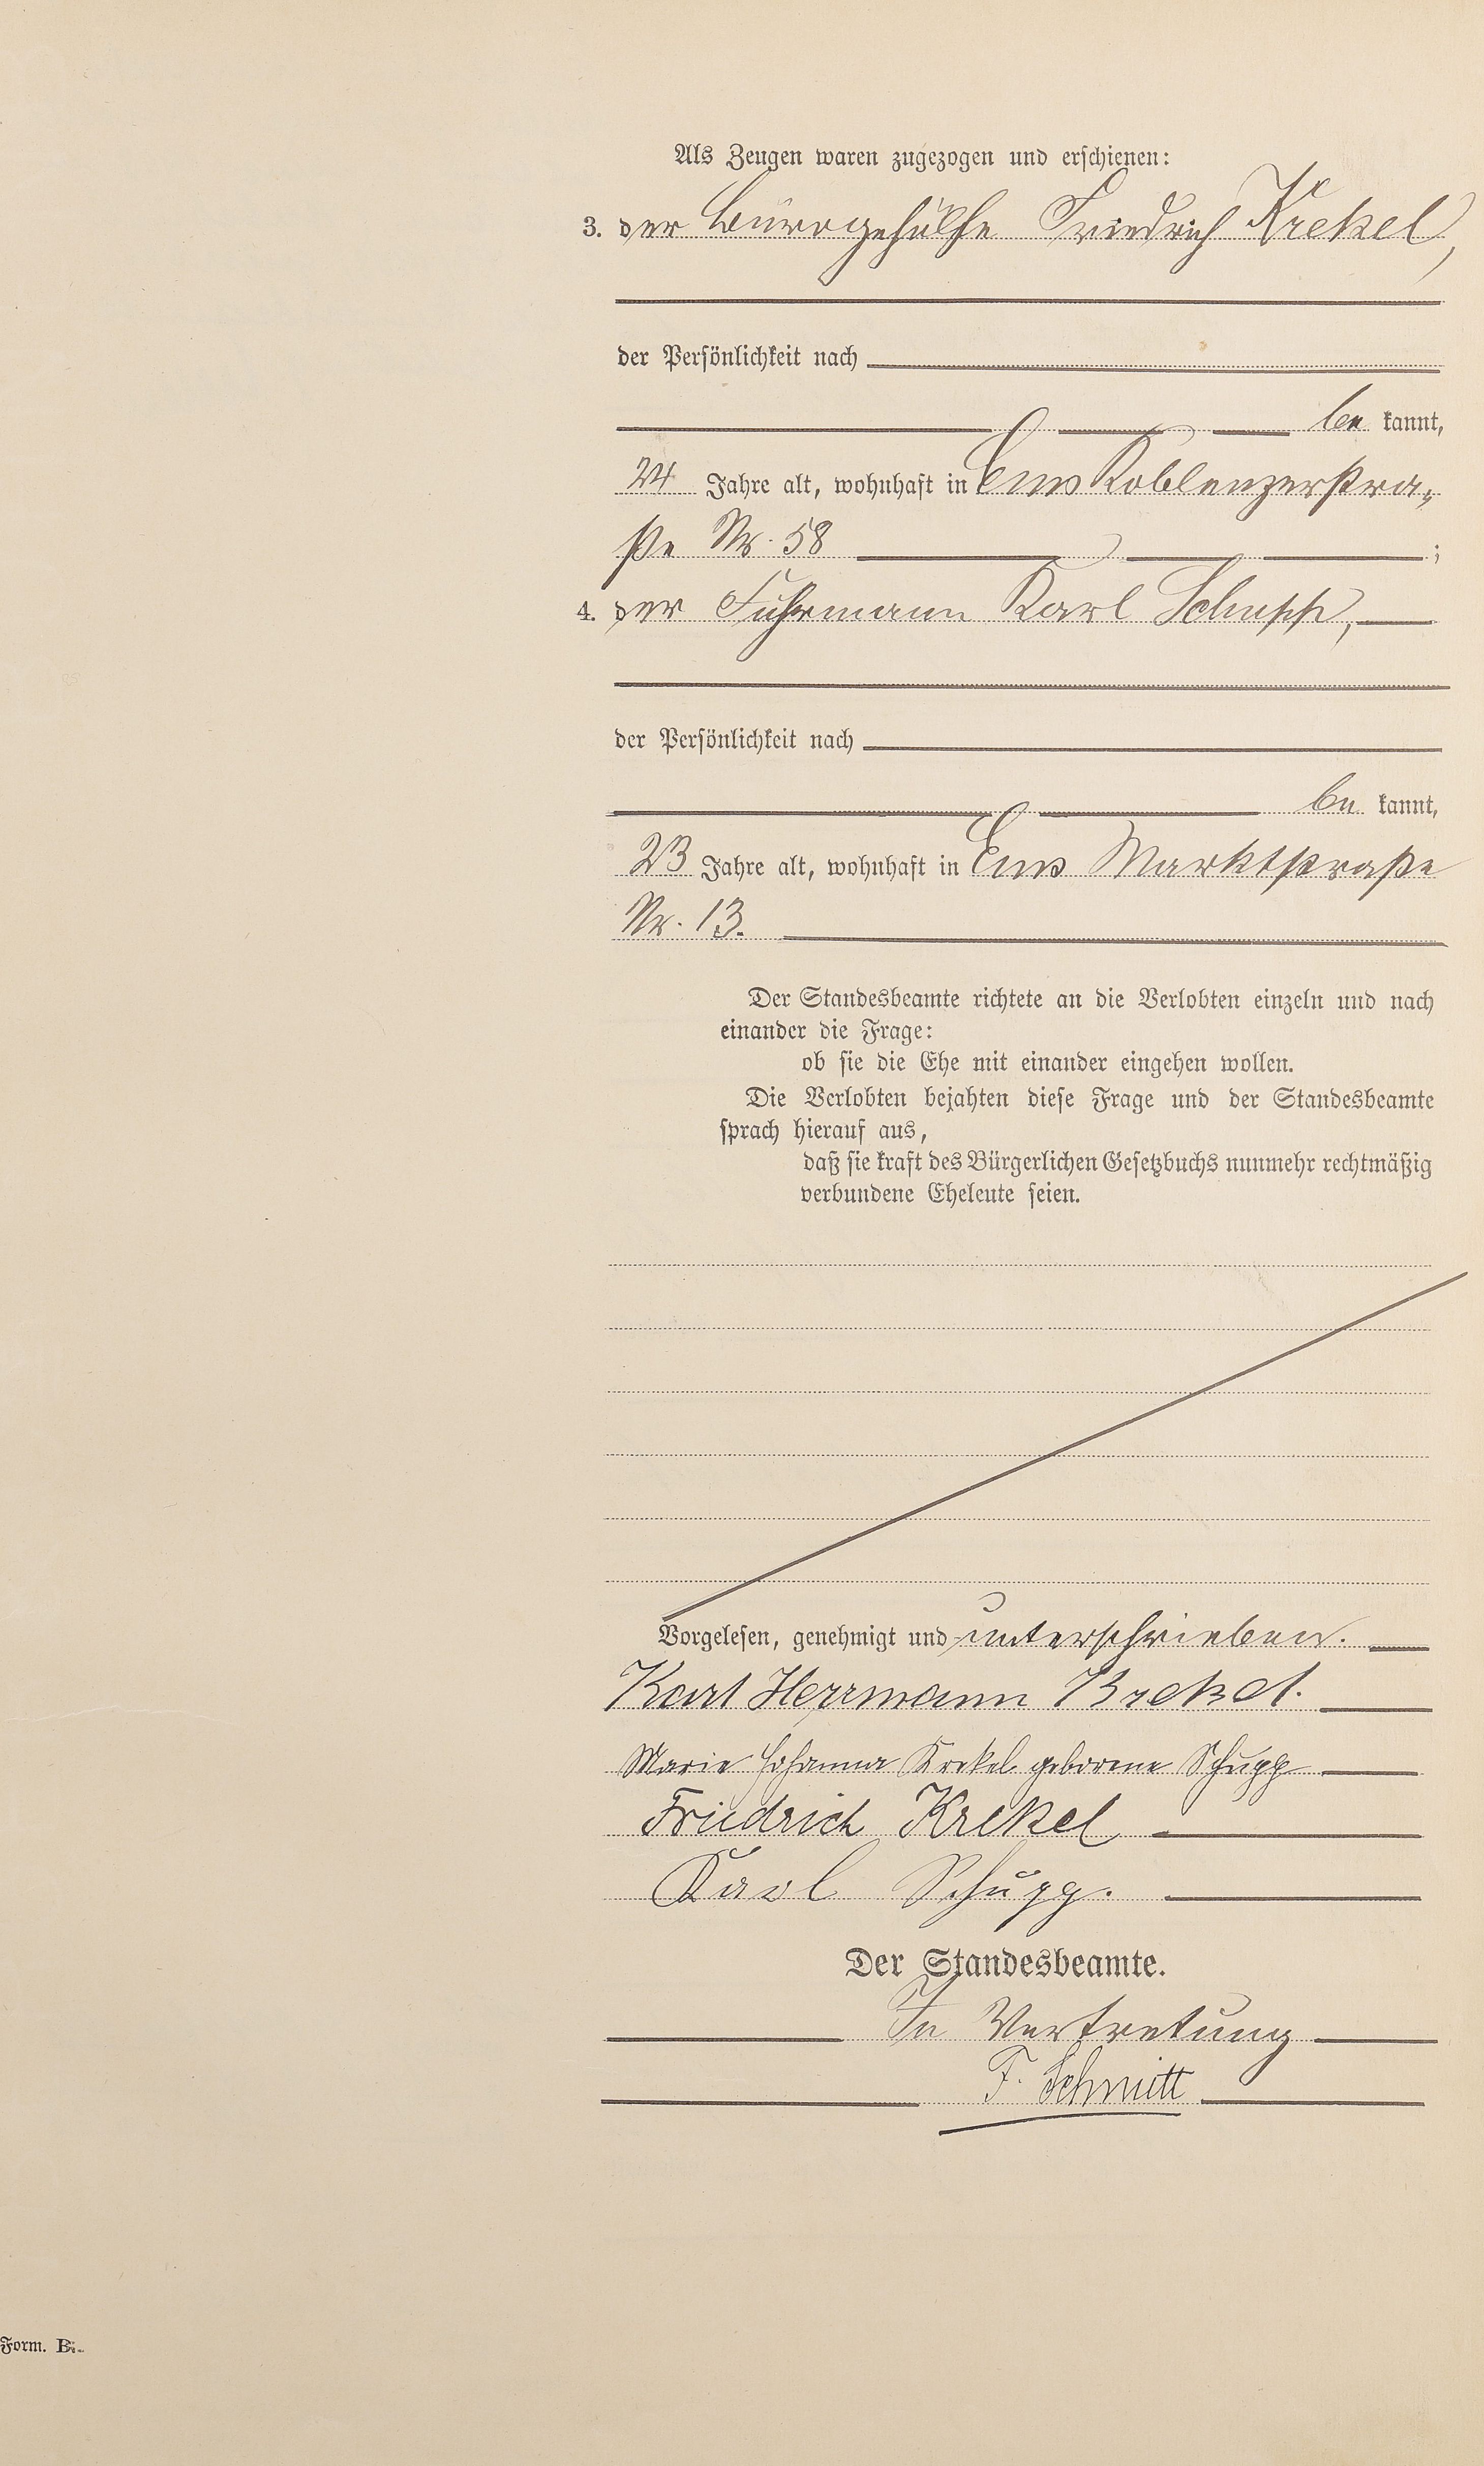 Als Zeugen waren zugezogen und erschienen:
3. der Bürogehülfe Friedrich Krekel,
der Persönlichkeit nach
be kannt,
24 Jahre alt, wohnhaft in Ems Koblenzerstra-
ße Nr. 58 ;
4. der Fuhrmann Karl Schupp,
der Persönlichkeit nach
be kannt,
23 Jahre alt, wohnhaft in Ems Marktstraße
Nr. 13.
Der Standesbeamte richtete an die Verlobten einzeln und nach
einander die Frage:
ob sie die Ehe mit einander eingehen wollen.
Die Verlobten bejahten diese Frage und der Standesbeamte
sprach hierauf aus,
daß sie kraft des Bürgerlichen Gesetzbuchs nunmehr rechtmäßig
verbundene Eheleute seien.
Vorgelesen, genehmigt und unterschrieben.
Karl Herrmann Krekel.
Marie Johanna Krekel geborene Schupp
Friedrich Krekel
Karl Schupp.
Der Standesbeamte.
In Vertretung
F. Schmitt
Form. B.